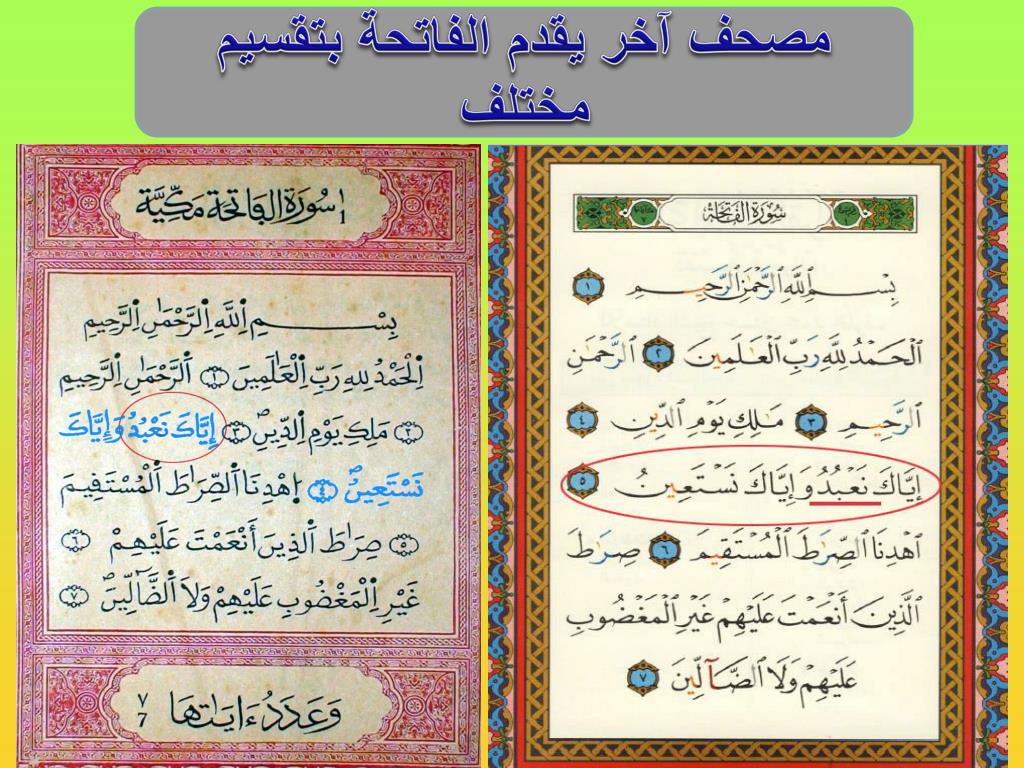 مصحف آخر يقدم الفاتحة بتقسيم
مختلف
سُورَةُ الفَاتِحَة
بِسْمِ ٱللَّهِ ٱلرَّحْمَٰنِ ٱلرَّحِيمِ ١
ٱلْحَمْدُ لِلَّهِ رَبِّ ٱلْعَٰلَمِينَ ٢ ٱلرَّحْمَٰنِ
ٱلرَّحِيمِ ٣ مَٰلِكِ يَوْمِ ٱلدِّينِ ٤
إِيَّاكَ نَعْبُدُ وَإِيَّاكَ نَسْتَعِينُ ٥
ٱهْدِنَا ٱلصِّرَٰطَ ٱلْمُسْتَقِيمَ ٦ صِرَٰطَ
ٱلَّذِينَ أَنْعَمْتَ عَلَيْهِمْ غَيْرِ ٱلْمَغْضُوبِ
عَلَيْهِمْ وَلَا ٱلضَّآلِّينَ ٧
1 سُورَةُ الفَاتِحَةِ مَكِّيَّة
بِسْمِ اِ۬للَّهِ اِ۬لرَّحْمَٰنِ اِ۬لرَّحِيمِ
اِ۬لْحَمْدُ لِلهِ رَبِّ اِ۬لْعَٰلَمِينَ ١ اَ۬لرَّحْمَٰنِ اِ۬لرَّحِيمِ
٢ مَلِكِ يَوْمِ اِ۬لدِّينِ ٣ إِيَّاكَ نَعْبُدُ وَإِيَّاكَ
نَسْتَعِينُ ٤ اِ۪هْدِنَا اَ۬لصِّرَٰطَ اَ۬لْمُسْتَقِيمَ
٥ صِرَٰطَ اَ۬لذِينَ أَنْعَمْتَ عَلَيْهِمْ ٦
غَيْرِ اِ۬لْمَغْضُوبِ عَلَيْهِمْ وَلَا اَ۬لضَّآلِّينَ ٧
وَعَدَدُ ءَايَٰتِهَا ٧ 7